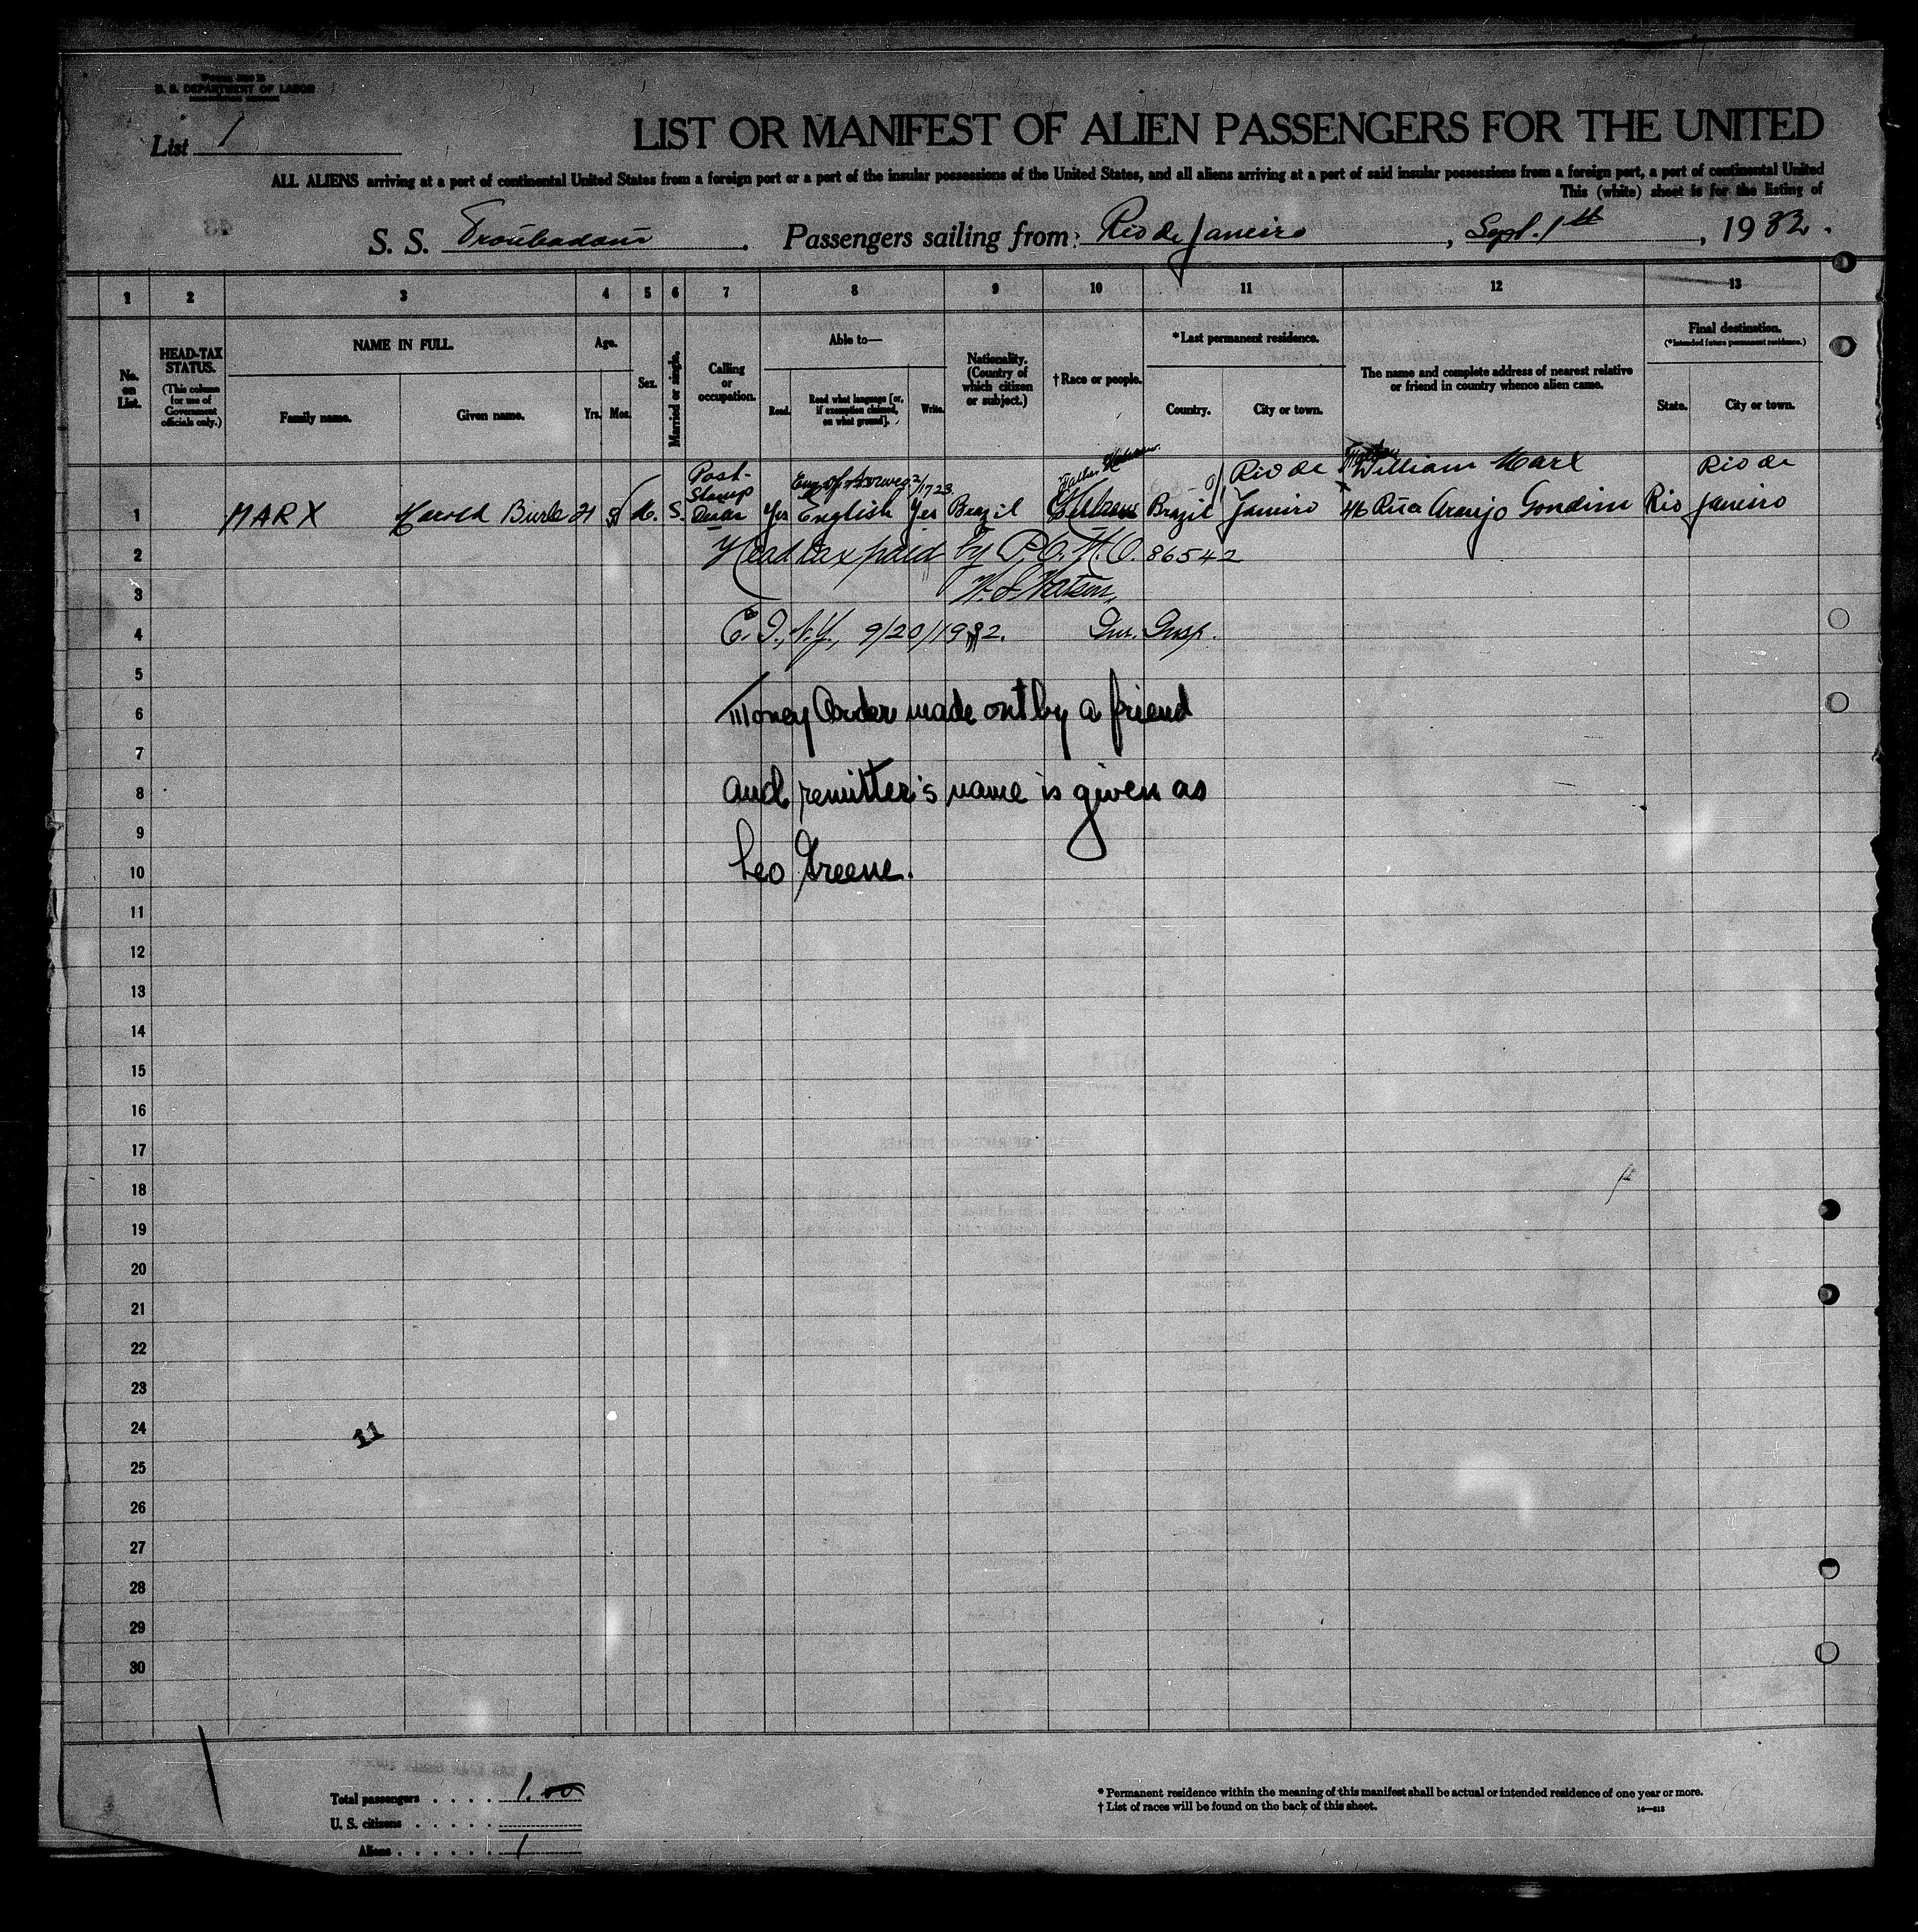 U. S. DEPARTMENT OF LABOR
List 1
LIST OR MANIFEST OF ALIEN PASSENGERS FOR THE UNITED
ALL ALIENS arriving at a port of continental United States from a foreign port or a port of the insular possessions of the United States, and all aliens arriving at a port of said insular possessions from a foreign port, a port of continental United
This (white) sheet is for the listing of
S. S. Troubadour. Passengers sailing from: Rio de Janeiro, Sept. 1th, 1932.
1 2 3 4 5 6 7 8 9 10 11 12 13
No. on List.
HEAD-TAX STATUS. (This column for use of Government officials only.)
NAME IN FULL.
Family name.
Given name.
Age.
Yrs. Mos.
Sex.
Married or single.
Calling or occupation.
Able to—
Read.
Read what language [or, if exemption claimed, on what ground].
Write.
Nationality. (Country of which citizen or subject.)
† Race or people.
*Last permanent residence.
Country.
City or town.
The name and complete address of nearest relative or friend in country whence alien came.
Final destination. (*Intended future permanent residence.)
State.
City or town.
1 MARX Harold Burle 21 M. S. Post-Stamp Dealer Yes English Yes Brazil Brazil Rio de Janeiro William Marx 46 Rua Araujo Gondim Rio Rio de Janeiro
2 Head tax paid by P.O. M.O. 86542
3 W. S. Watson,
4 E. I., N.Y., 9/20/1932. Im. Insp.
5
6 Money Order made out by a friend
7
8 and remitter's name is given as
9
10 Leo Greene.
11
12
13
14
15
16
17
18
19
20
21
22
23
24
11
25
26
27
28
29
30
Total passengers . . . . 1.00
U. S. citizens . . . . .
Aliens . . . . . . 1
* Permanent residence within the meaning of this manifest shall be actual or intended residence of one year or more.
† List of races will be found on the back of this sheet.